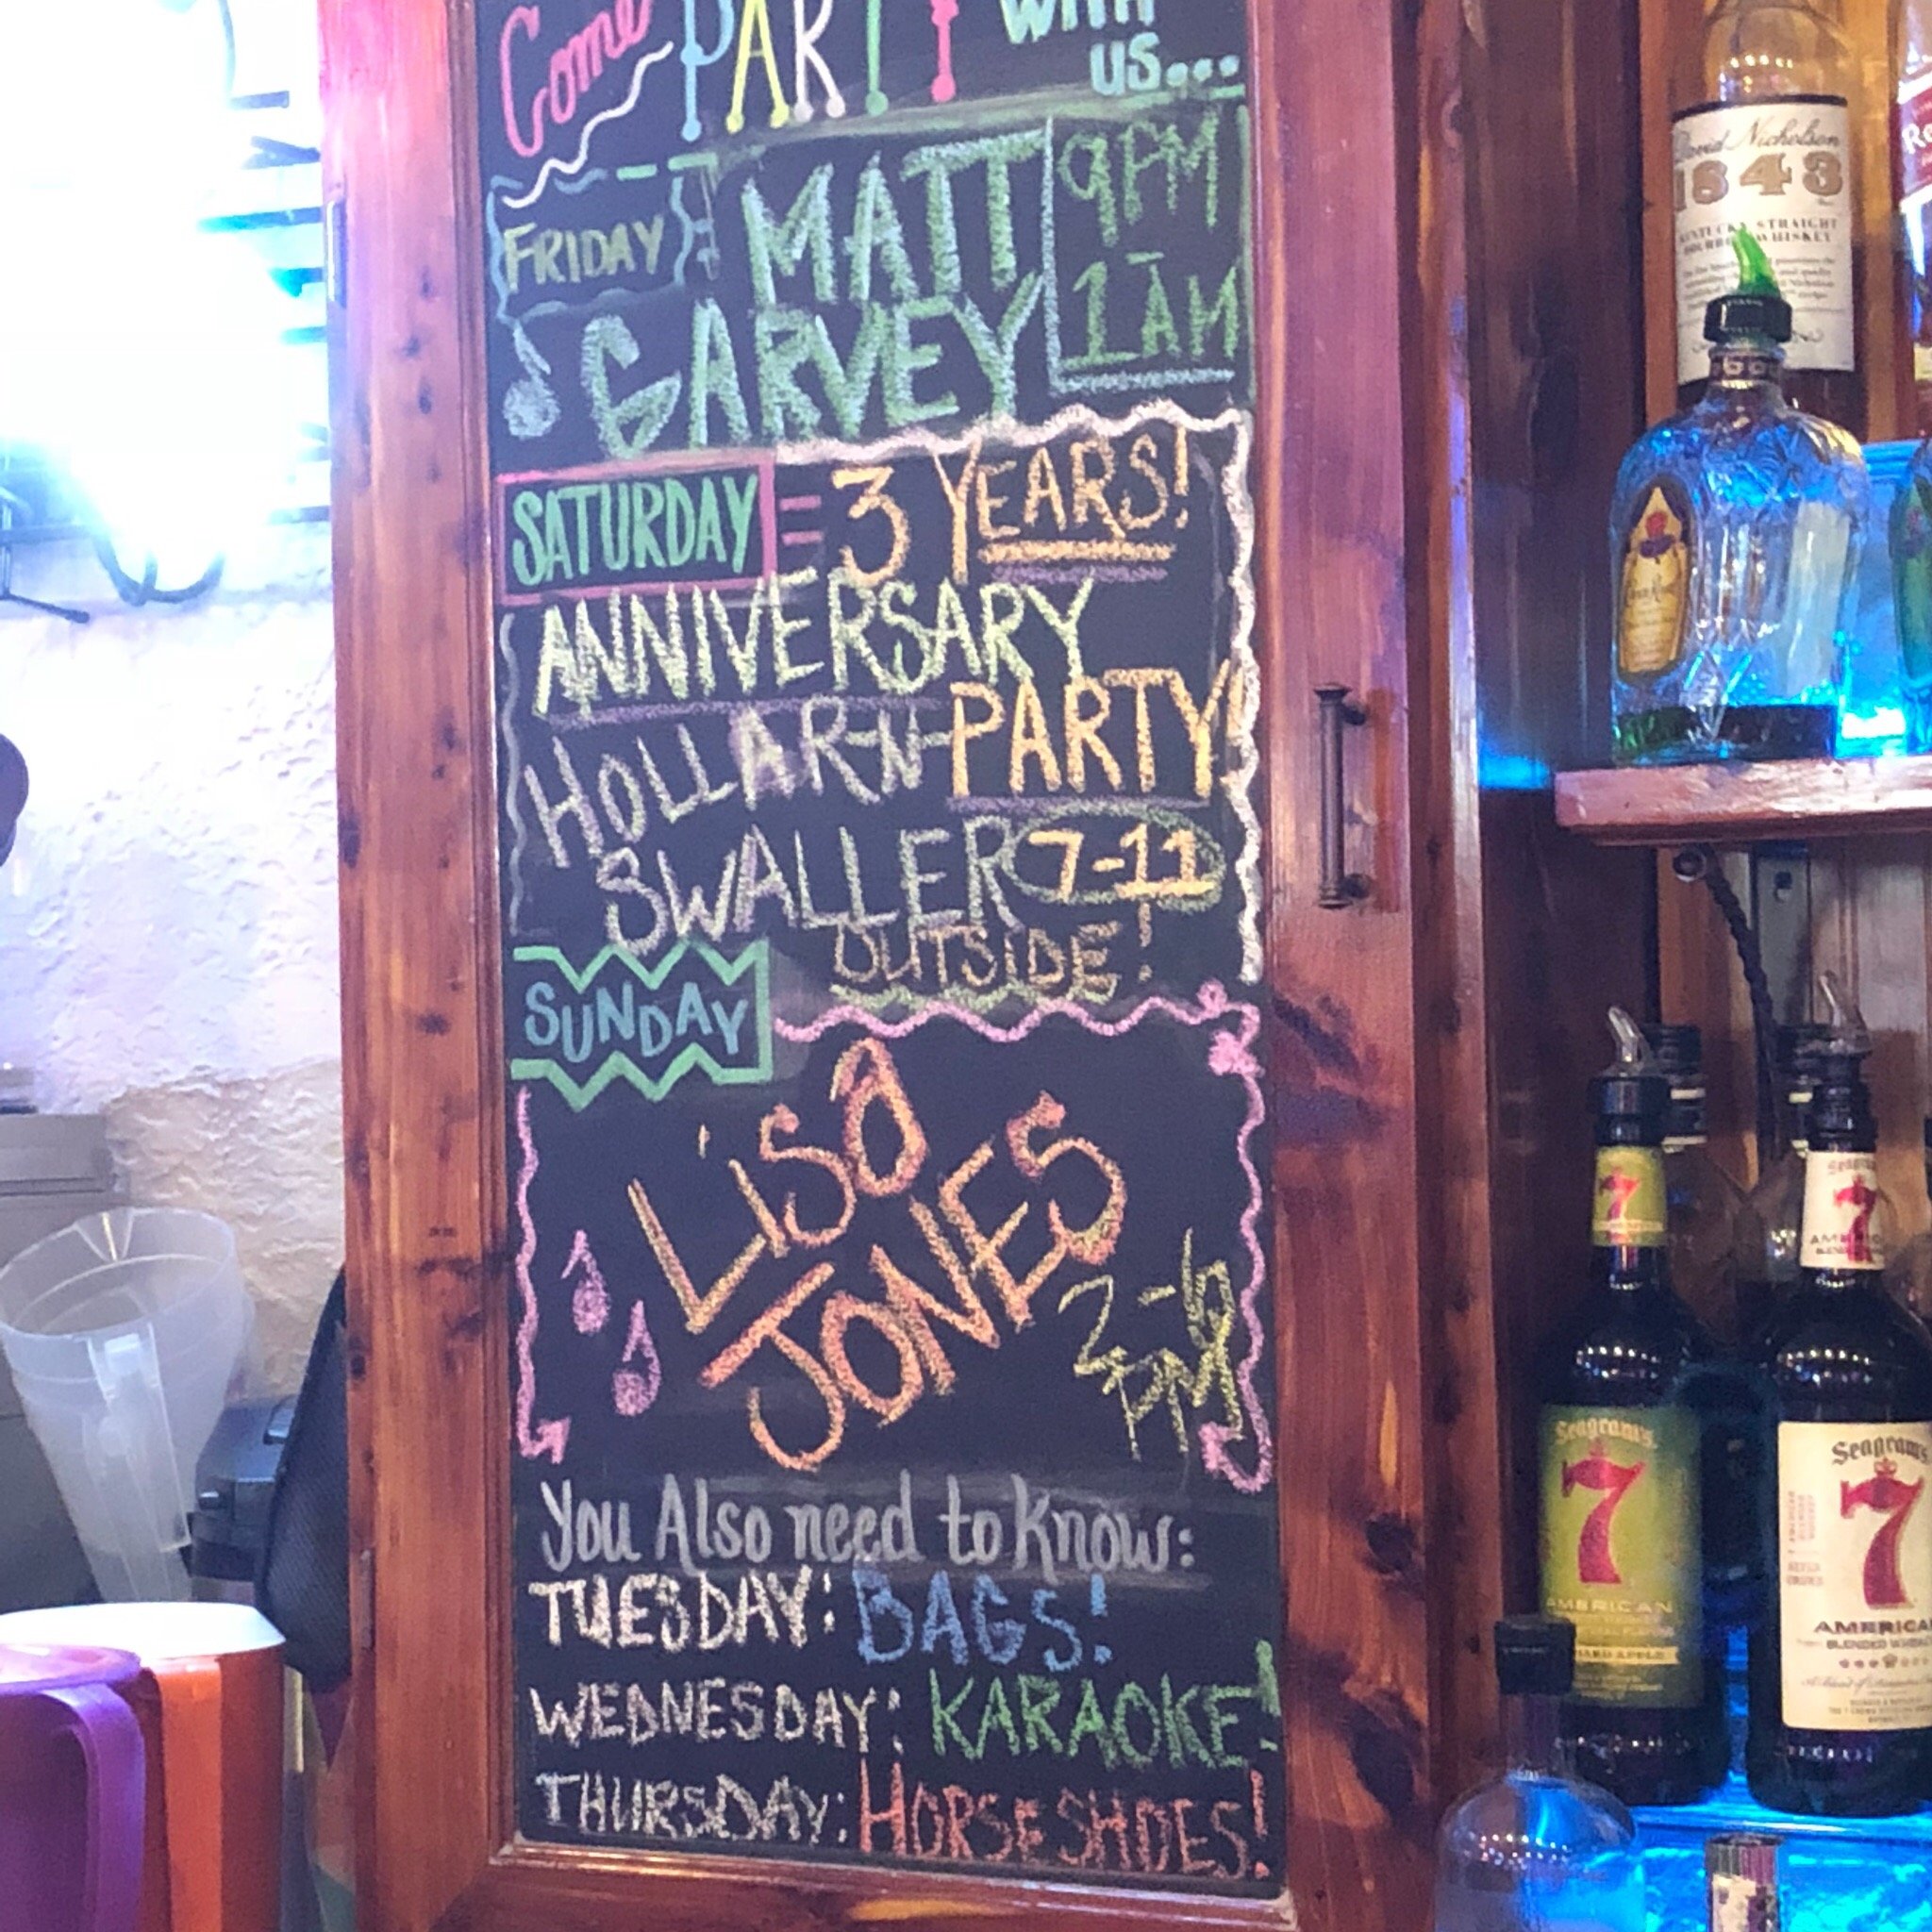 Come PARTY WITH
US...
FRIDAY = MATT
GARVEY
9PM
-
1AM
SATURDAY = 3 YEARS!
ANNIVERSARY
PARTY!
HOLLAR-N-
SWALLER 7-11
OUTSIDE!
SUNDAY
LiSa
JONES
2-6
PM
You Also need to Know:
TUESDAY: BAGS!
WEDNESDAY: KARAOKE!
THURSDAY: HORSESHOES!
David Nicholson
1843
KENTUCKY STRAIGHT
BOURBON WHISKEY
7
Seagram's
7
AMERICAN
Seagram's
7
AMERICAN
BLENDED WHISKEY